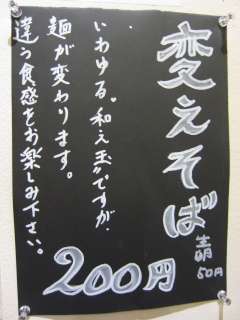 変えそば
50円
いわゆる。和え玉〟ですが、
麺が変わります。
違う食感をお楽しみ下さい。
200円